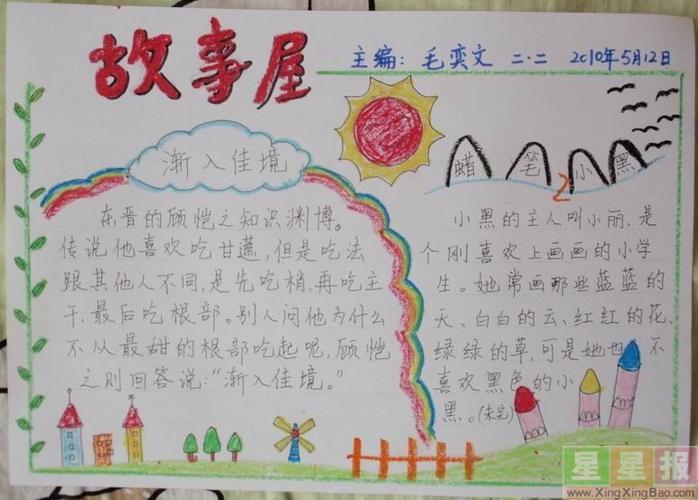 故事屋
主编：毛奕文 二·二 2010年5月12日
渐入佳境
东晋的顾恺之知识渊博。
传说他喜欢吃甘蔗，但是吃法
跟其他人不同，是先吃梢，再吃主
干，最后吃根部。别人问他为什么
不从最甜的根部吃起呢，顾恺
之则回答说：“渐入佳境。”
蜡笔小黑
2
小黑的主人叫小丽，是
个刚喜欢上画画的小学
生。她常画那些蓝蓝的
天、白白的云、红红的花、
绿绿的草，可是她也不
喜欢黑色的小
黑。(未完)
星星报
www.XingXingBao.com